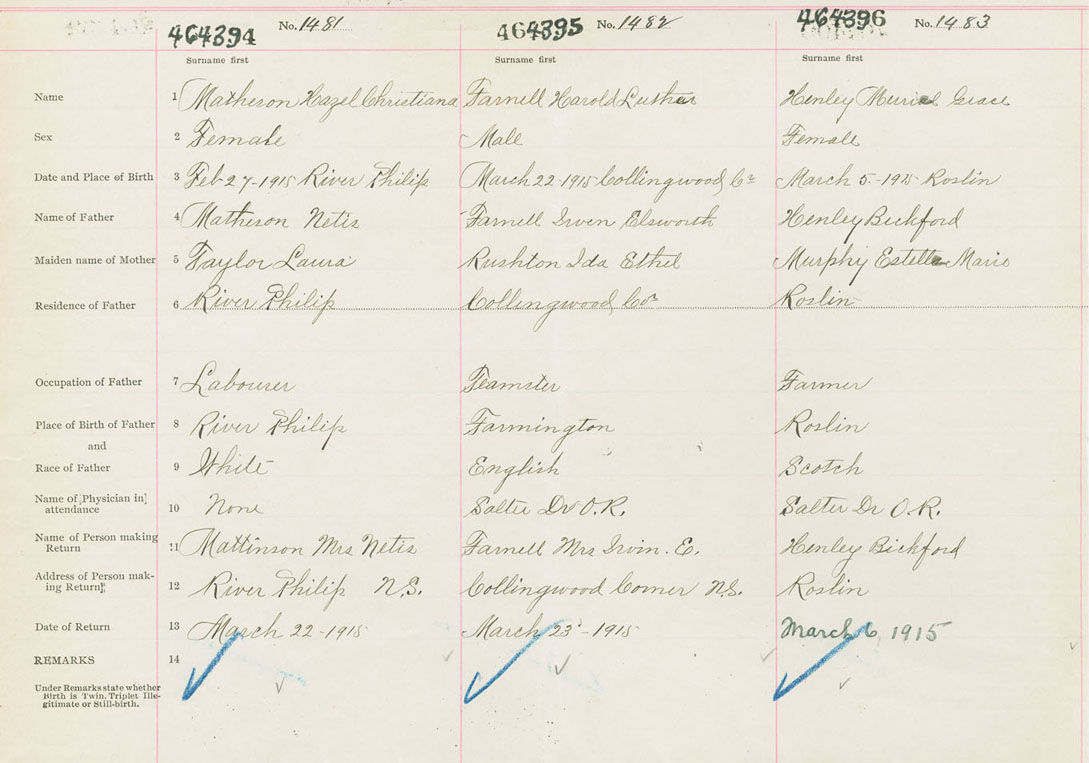 464394 No. 1481 464395 No. 1482 464396 No. 1483
Surname first Surname first Surname first
Name 1 Matheson Hazel Christiana Farnell Harold Luther Henley Muriel Grace
Sex 2 Female Male Female
Date and Place of Birth 3 Feb 27-1915 River Philip March 22-1915 Collingwood Cor March 5-1915 Roslin
Name of Father 4 Matheson Netis Farnell Irven Elsworth Henley Bickford
Maiden name of Mother 5 Taylor Laura Rushton Ida Ethel Murphy Estella Marie
Residence of Father 6 River Philip Collingwood Cor Roslin
Occupation of Father 7 Labourer Teamster Farmer
Place of Birth of Father 8 River Philip Farmington Roslin
and
Race of Father 9 White English Scotch
Name of Physician in attendance 10 None Salter Dr O.R. Salter Dr O.R.
Name of Person making Return 11 Mattinson Mrs Netis Farnell Mrs Irvin. E. Henley Bickford
Address of Person mak-
ing Return 12 River Philip N.S. Collingwood Corner N.S. Roslin
Date of Return 13 March 22-1915 March 23-1915 March 6, 1915
REMARKS 14
Under Remarks state whether
Birth is Twin, Triplet Ille-
gitimate or Still-birth.